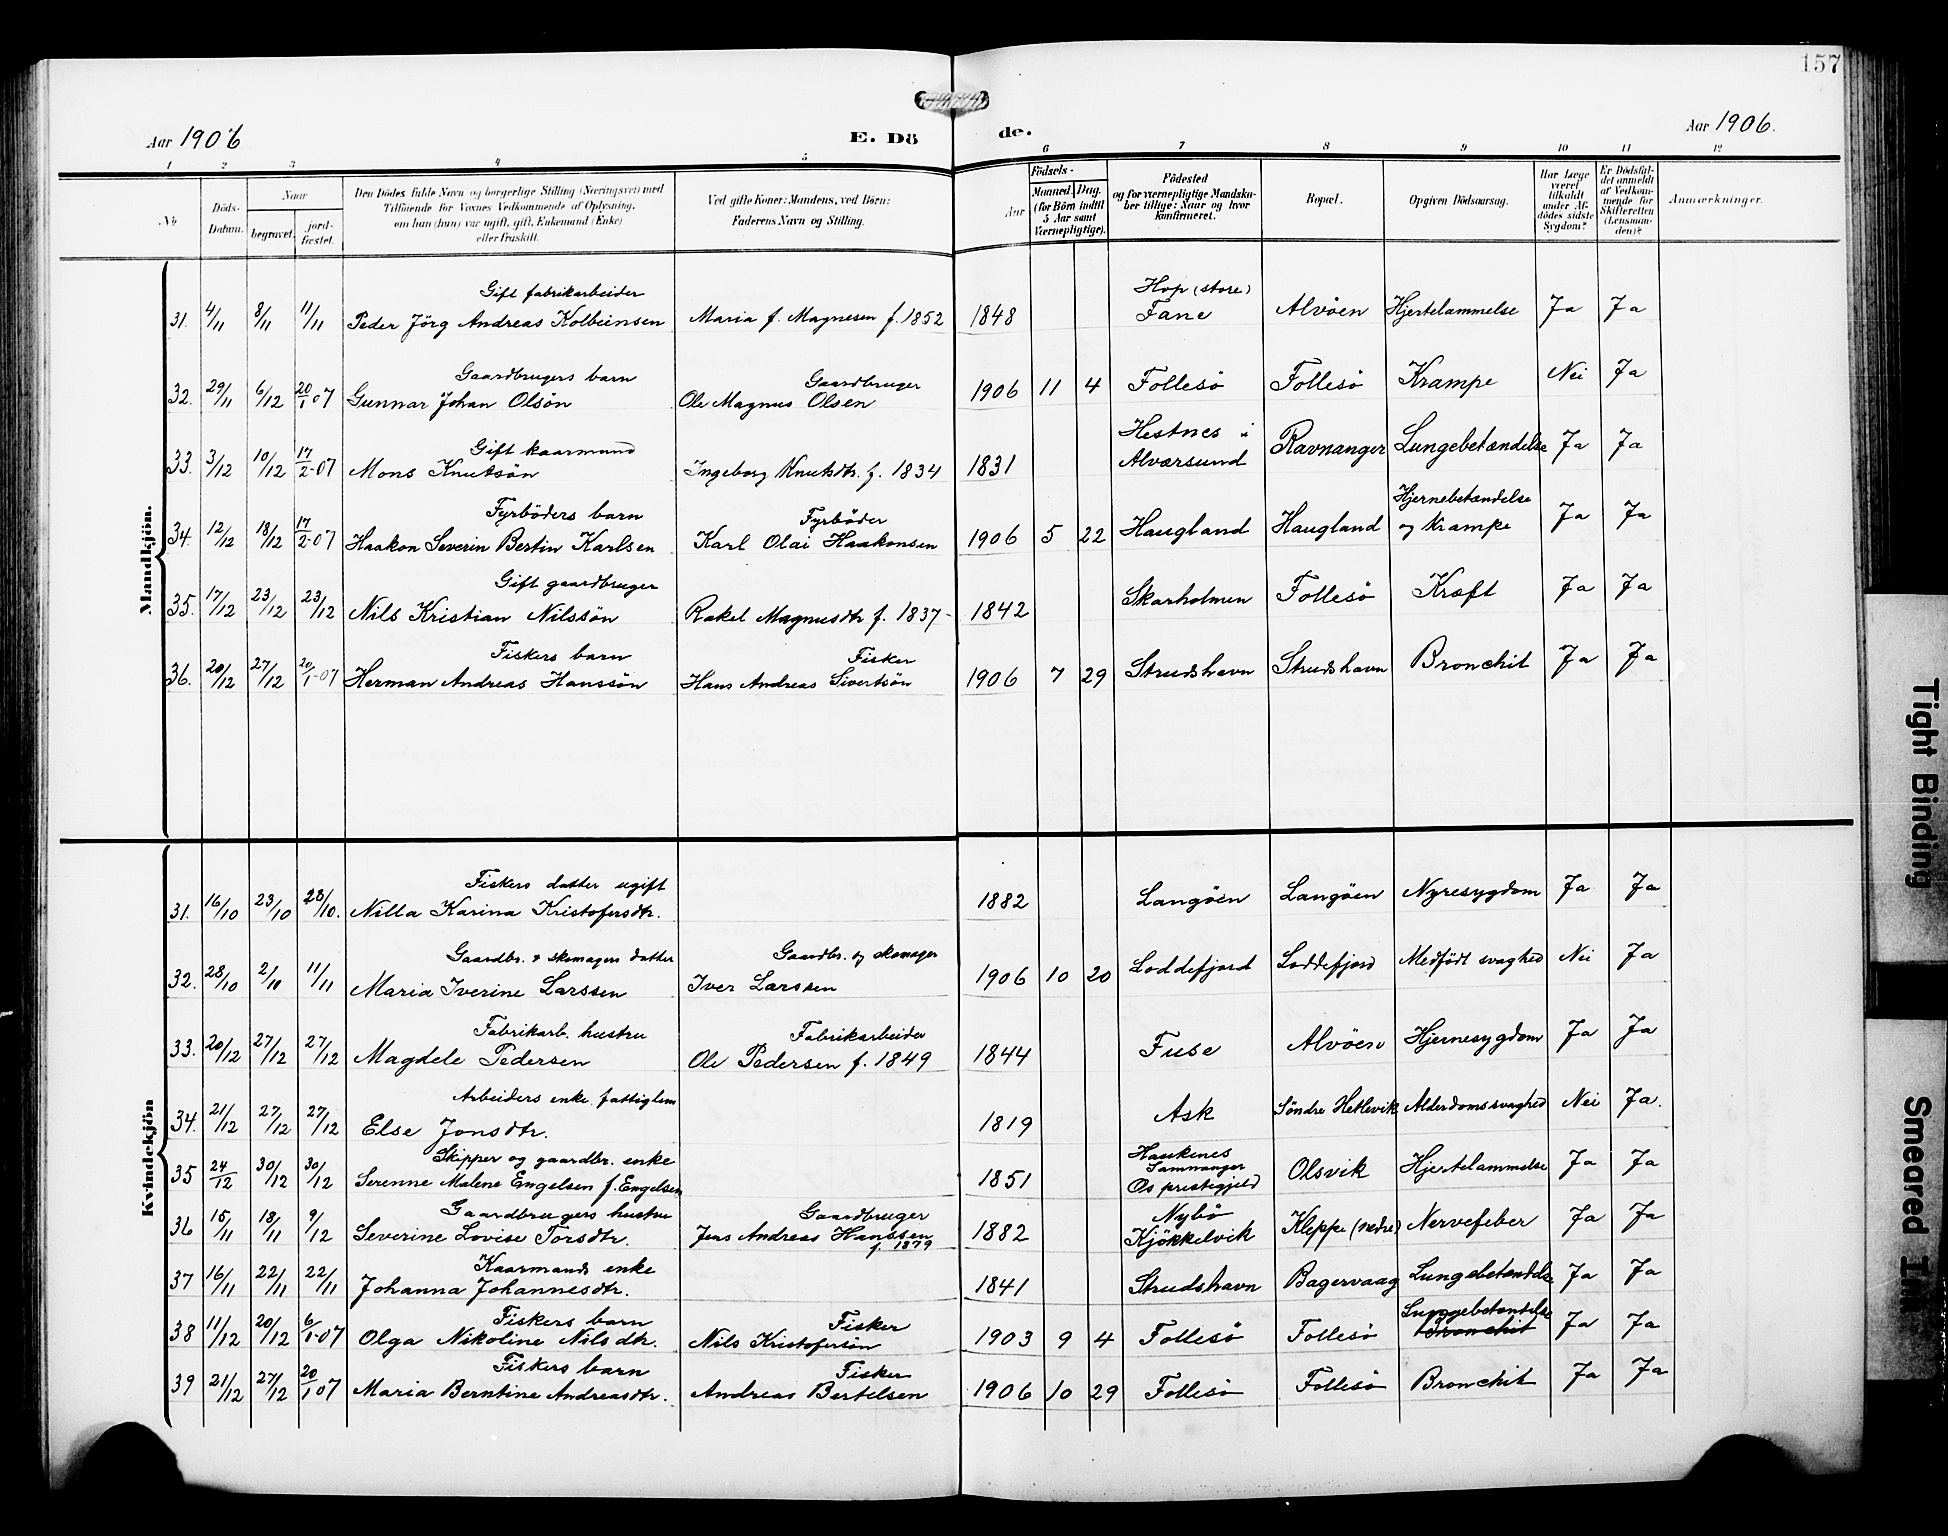 157
Aar 1906
E. Dö
de.
Aar 1906.
1 2 3 4 5 6 7 8 9 10 11 12
No
Döds-Datum.
Naar
begravet.
jord-fæstet.
Den Dödes fulde Navn og borgerlige Stilling (Næringsvei) med
Tilföiende for Voxnes Vedkommende af Oplysning,
om han (hun) var ugift, gift, Enkemand (Enke)
eller fraskilt.
Ved gifte Koner: Mandens, ved Börn:
Faderens Navn og Stilling.
Aar
Födsels-
Maaned. Dag.
(for Börn indtil
5 Aar samt
Værnepligtige).
Födested
og for værnepligtige Mandska-
ber tillige: Naar og hvor
konfirmeret.
Bopæl.
Opgiven Dödsaarsag.
Har Læge
været
tilkaldt
under Af-
dödes sidste
Sygdom?
Er Dödsfal-
det anmeldt
af Vedkom-
mende for
Skifteretten
(Lensman-
den)?
Anmærkninger.
Mandkjön.
Gift fabrikarbeider Hop (store)
31. 4/11 8/11 11/11 Peder Jörg Andreas Kolbeinsen Maria f. Magnesen f. 1852 1848 Fane Alvöen Hjertelammelse Ja Ja
Gaardbrugers barn Gaardbruger
32. 29/11 6/12 20/1 07 Gunnar Johan Olsön Ole Magnus Olsen 1906 11 4 Follesö Follesö Krampe Nei Ja
Gift kaarmand Hestnes i
33. 3/12 10/12 17/2-07 Mons Knutsön Ingeborg Knutsdtr. f. 1834 1831 Alværsund Ravnanger Lungebetændelse Ja Ja
Fyrböders barn Fyrböder Hjernebetændelse
34. 12/12 18/12 17/2-07 Haakon Severin Bertin Karlsen Karl Olai Haakonsen 1906 5 22 Haugland Haugland og Krampe Ja Ja
Gift gaardbruger
35. 17/12 23/12 23/12 Nils Kristian Nilssön Rakel Magnusdtr f. 1837- 1842 Skarholmen Follesö Kræft Ja Ja
Fiskers barn Fisker
36. 20/12 27/12 20/1-07 Herman Andreas Hanssön Hans Andreas Sivertsön 1906 7 29 Strudshavn Strudshavn Bronchit Ja Ja
Kvindekjön
Fiskers datter ugift
31. 16/10 23/10 28/10. Nilla Karina Kristofersdtr. 1882 Langöen Langöen Nyresygdom Ja Ja
Gaardbr. & skomagers datter Gaardbr. og skomager
32. 28/10 2/10 11/11 Maria Iverine Larssen Iver Larssen 1906 10 20 Loddefjord Loddefjord Medfödt svaghed Nei Ja
Fabrikarb. hustru Fabrikarbeider
33. 20/12 27/12 27/12 Magdele Pedersen Ole Pedersen f. 1849 1844 Fuse Alvöen Hjernesygdom Ja Ja
Arbeiders enke, fattiglem
34. 21/12 27/12 27/12 Else Jonsdtr. 1819 Ask Söndre Hetlevik Alderdomssvaghed Nei Ja.
Skipper og gaardbr. enke Haukenes
Samnanger
35 24/12 30/12 30/12 Serenne Malene Engelsen f. Engelsen 1851 Os prestegjeld Olsvik Hjertelammelse Ja Ja
Gaardbrugers hustru Gaardbruger Nybö
36 15/11 18/11 9/12 Severine Lovise Torsdtr. Jens Andreas Hanssen f. 1879 1882 Kjökkelvik Kleppe (nedre) Nervefeber Ja Ja
Kaarmands enke
37 16/11 22/11 22/11 Johanna Johannesdtr. 1841 Strudshavn Bagervaag Lungebetændelse Ja Ja
Fiskers barn Fisker Lungebetændelse
38 11/12 20/12 6/1-07 Olga Nikoline Nilsdtr. Nils Kristofersön 1903 9 4 Follesö Follesö Bronchit Ja Ja
Fiskers barn Fisker
39 21/12 27/12 20/1 07 Maria Berntine Andreasdtr. Andreas Bertelsen 1906 10 29 Follesö Follesö Bronchit Ja Ja
Tight Binding
Smeared Ink